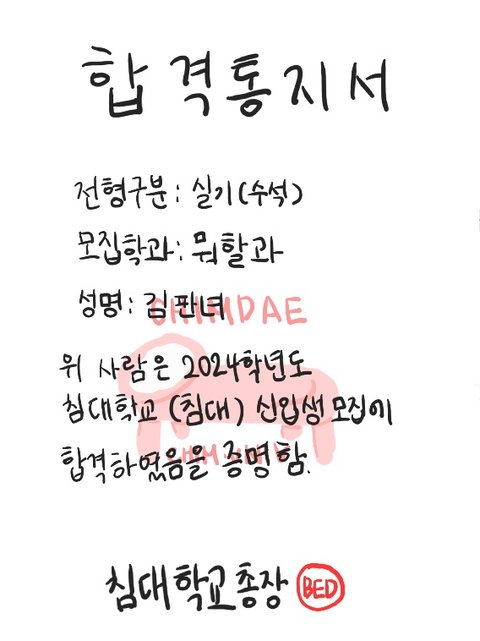 합격통지서
전형구분 : 실기(수석)
모집학과 : 뭐할과
성명 : 김판녀
CHIMDAE
위 사람은 2024학년도
침대학교 (침대) 신입생 모집에
합격하였음을 증명함.
침대학교총장 BED